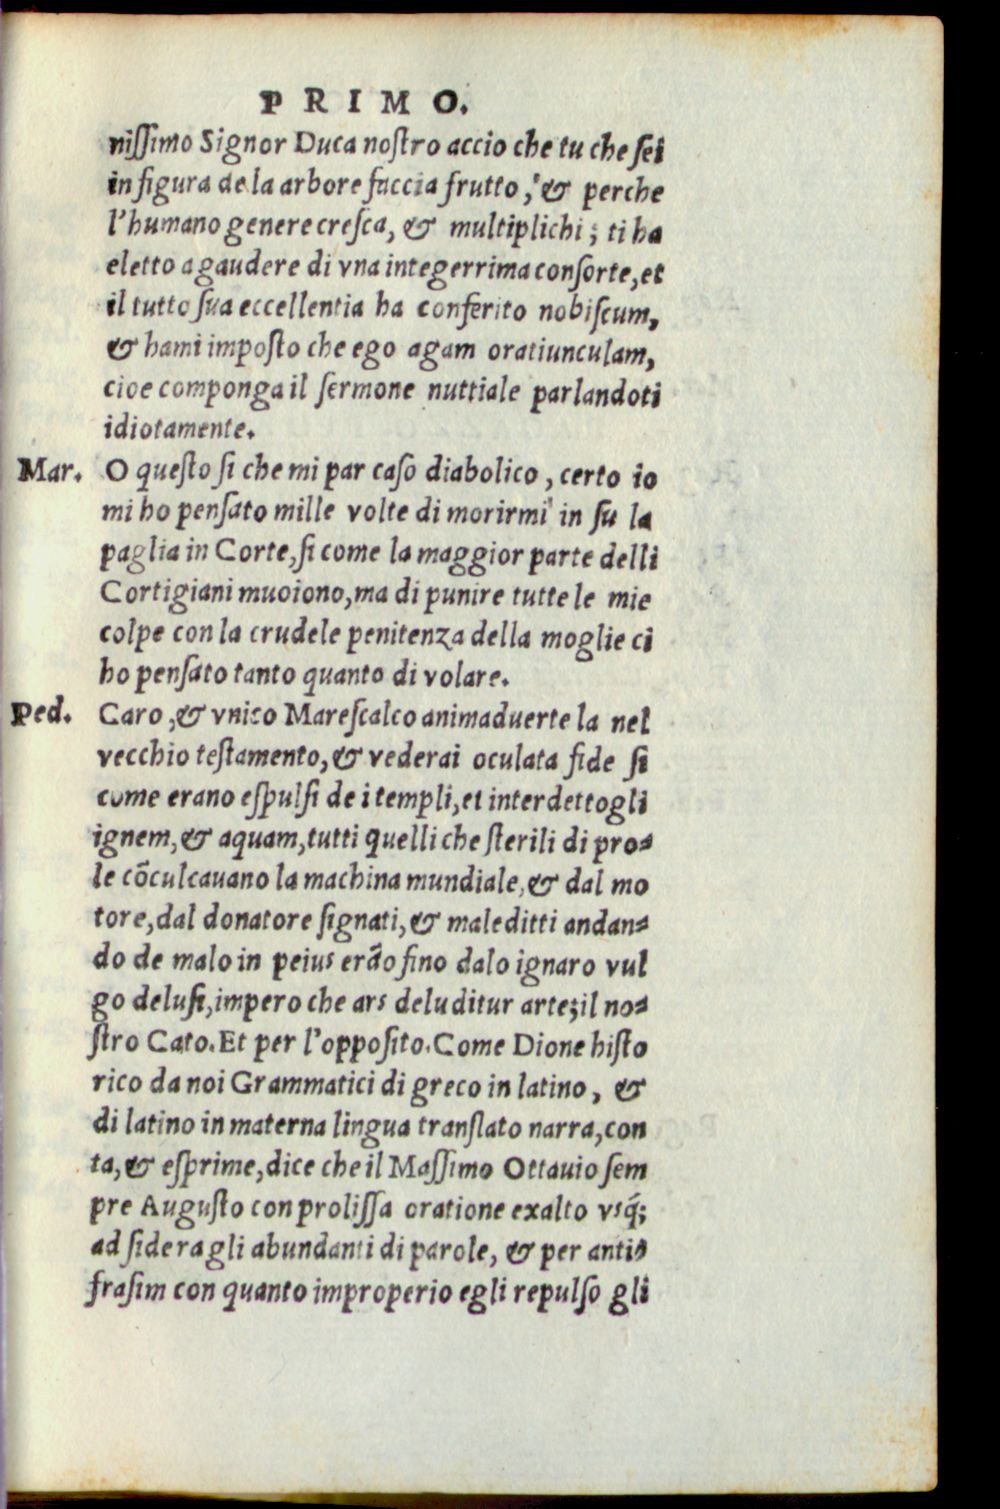 PRIMO.
nissimo Signor Duca nostro accio che tu che sei
in figura de la arbore faccia frutto, & perche
l'humano genere cresca, & multiplichi; ti ha
eletto a gaudere di vna integerrima consorte, et
il tutto sua eccellentia ha conferito nobiscum,
& hami imposto che ego agam oratiunculam,
cioe componga il sermone nuttiale parlandoti
idiotamente.
Mar. O questo si che mi par caso diabolico, certo io
mi ho pensato mille volte di morirmi in su la
paglia in Corte, si come la maggior parte delli
Cortigiani muoiono, ma di punire tutte le mie
colpe con la crudele penitenza della moglie ci
ho pensato tanto quanto di volare.
Ped. Caro, & vnico Marescalco animaduerte la nel
vecchio testamento, & vederai oculata fide si
come erano espulsi de i templi, et interdettogli
ignem, & aquam, tutti quelli che sterili di pro=
le cõculcauano la machina mundiale, & dal mo
tore, dal donatore signati, & maleditti andan=
do de malo in peius erão fino dalo ignaro vul
go delusi, impero che ars deluditur arte; il no=
stro Cato. Et per l'opposito. Come Dione histo
rico da noi Grammatici di greco in latino, &
di latino in materna lingua translato narra, con
ta, & esprime, dice che il Massimo Ottauio sem
pre Augusto con prolissa oratione exalto vsq̃;
ad sidera gli abundanti di parole, & per anti=
frasim con quanto improperio egli repulso gli